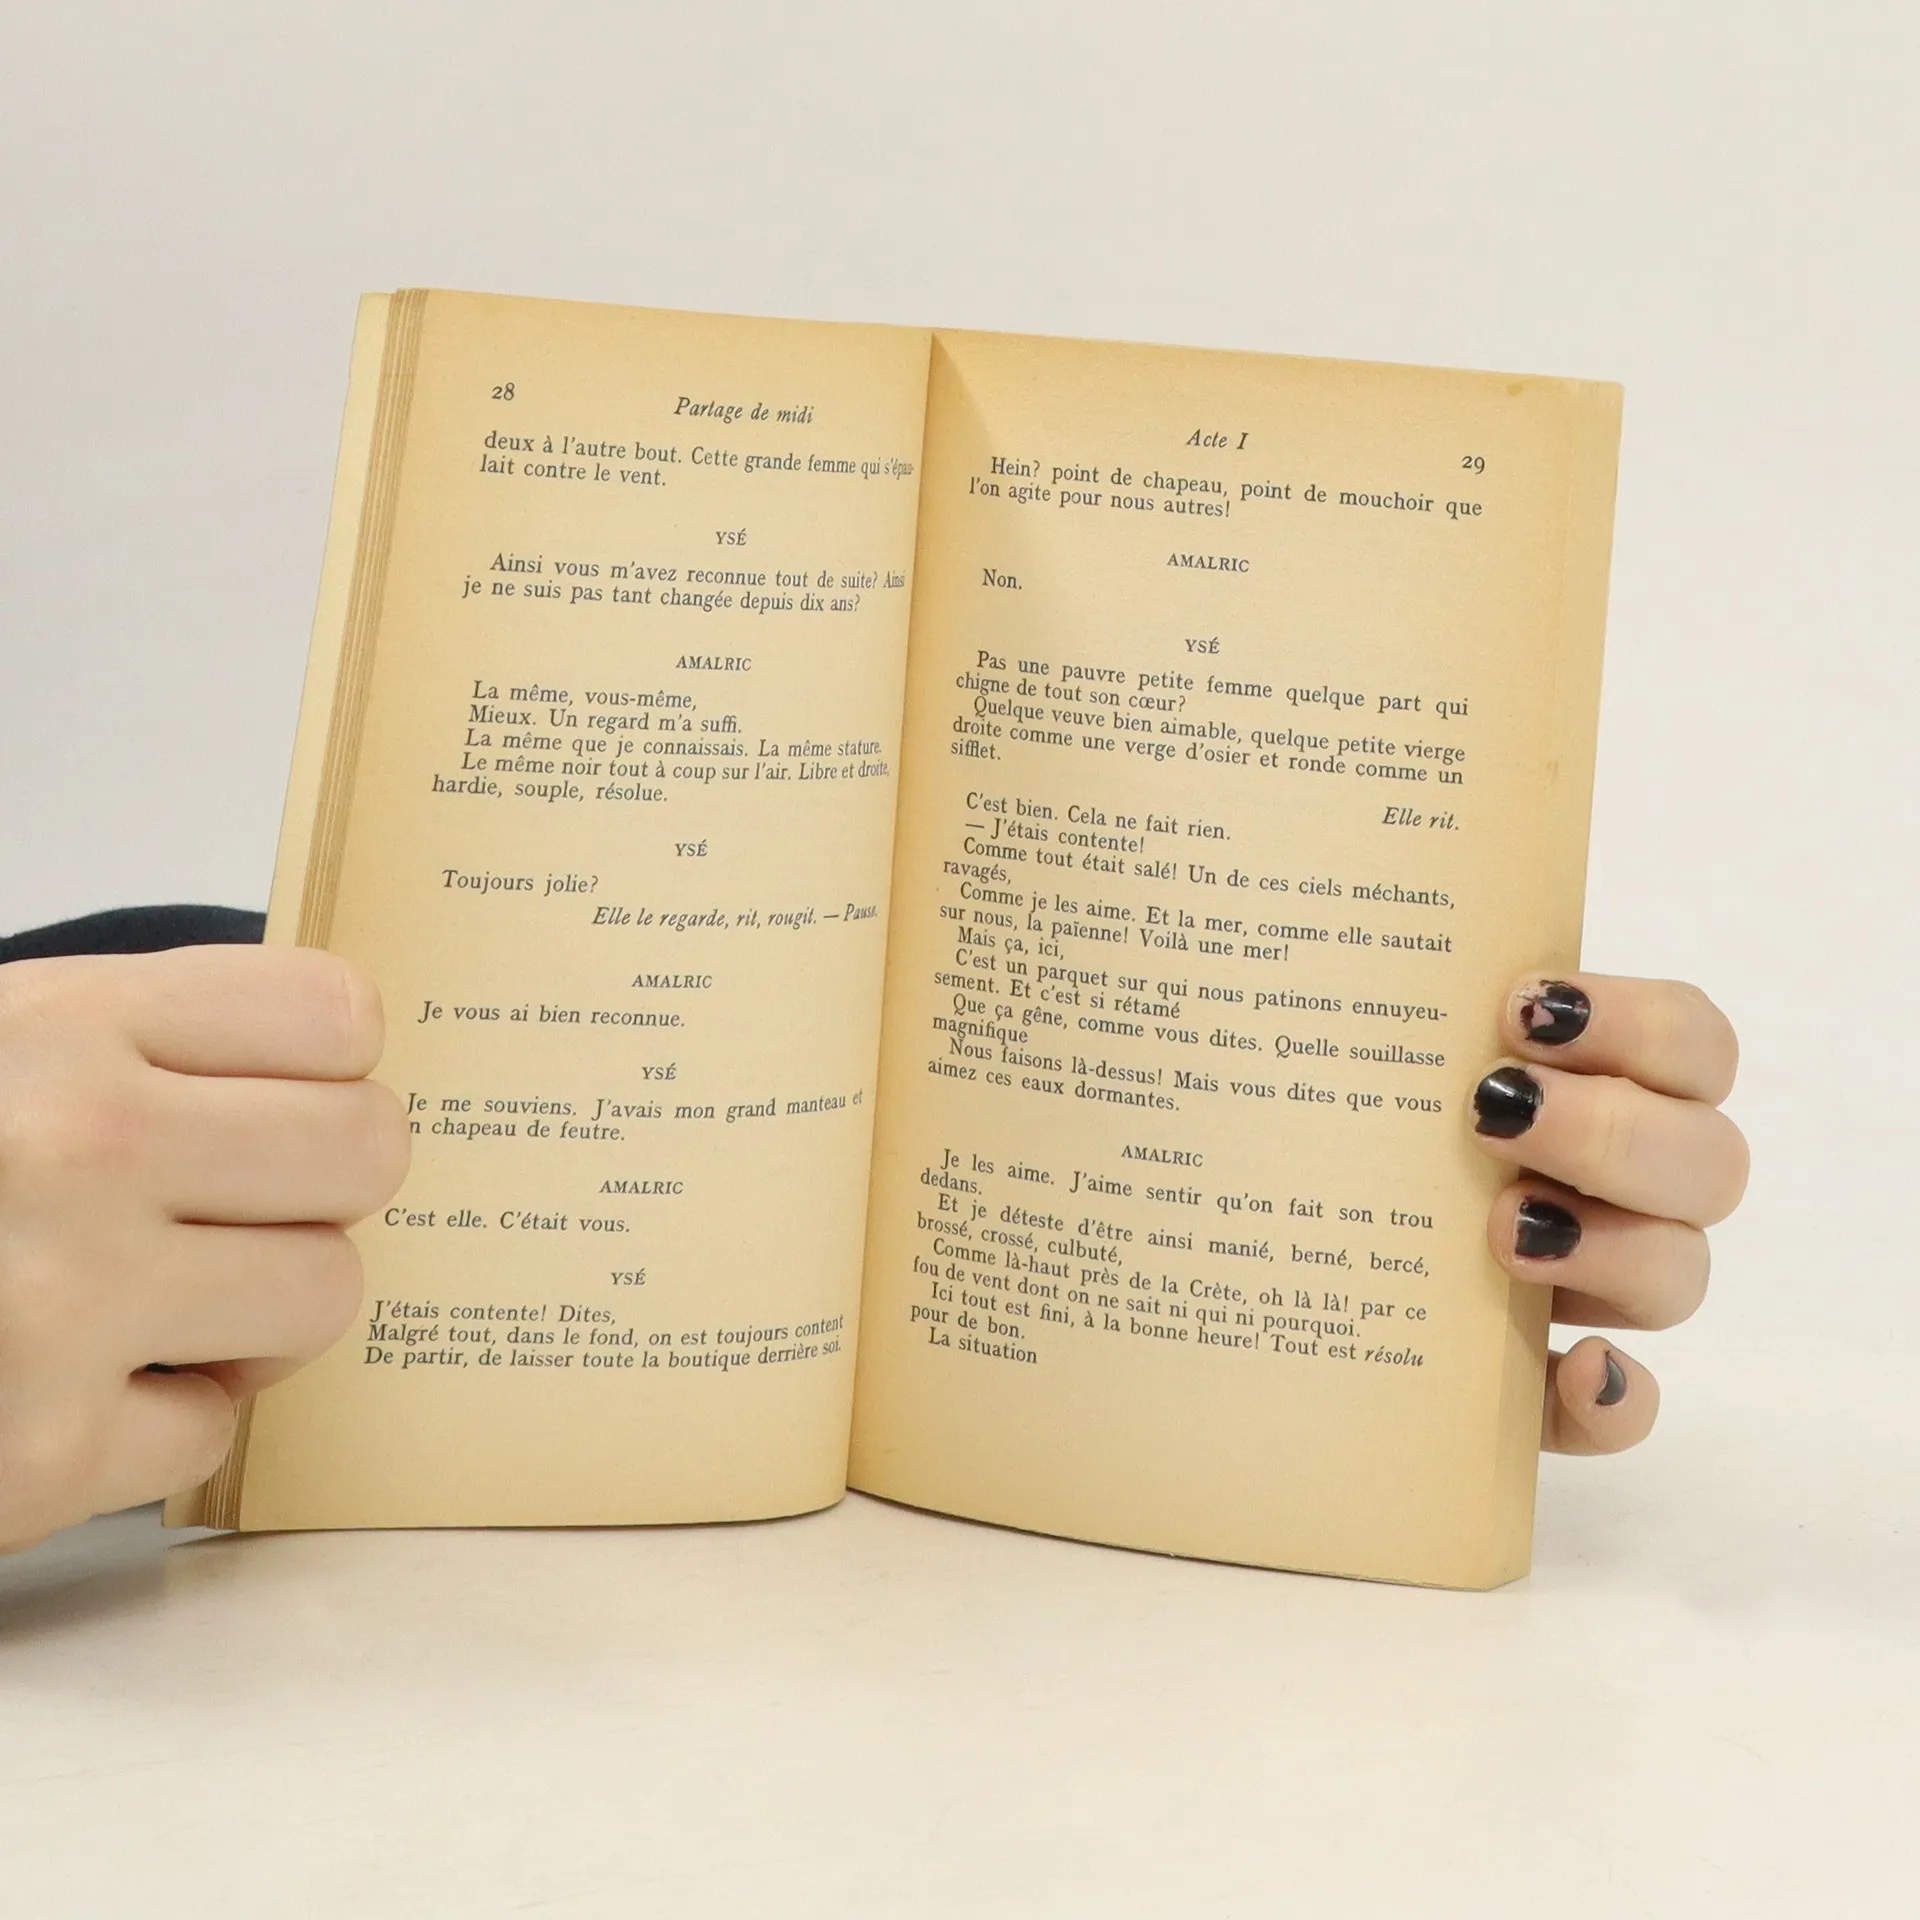 28
Partage de midi
deux à l'autre bout. Cette grande femme qui s'épau-
lait contre le vent.
YSÉ
Ainsi vous m'avez reconnue tout de suite? Ainsi
je ne suis pas tant changée depuis dix ans?
AMALRIC
La même, vous-même,
Mieux. Un regard m'a suffi.
La même que je connaissais. La même stature.
Le même noir tout à coup sur l'air. Libre et droite,
hardie, souple, résolue.
YSÉ
Toujours jolie?
Elle le regarde, rit, rougit. — Pause.
AMALRIC
Je vous ai bien reconnue.
YSÉ
Je me souviens. J'avais mon grand manteau et
n chapeau de feutre.
AMALRIC
C'est elle. C'était vous.
YSÉ
J'étais contente! Dites,
Malgré tout, dans le fond, on est toujours content
De partir, de laisser toute la boutique derrière soi.
Acte I
29
Hein? point de chapeau, point de mouchoir que
l'on agite pour nous autres!
AMALRIC
Non.
YSÉ
Pas une pauvre petite femme quelque part qui
chigne de tout son cœur?
Quelque veuve bien aimable, quelque petite vierge
droite comme une verge d'osier et ronde comme un
sifflet.
Elle rit.
C'est bien. Cela ne fait rien.
— J'étais contente!
Comme tout était salé! Un de ces ciels méchants,
ravagés,
Comme je les aime. Et la mer, comme elle sautait
sur nous, la païenne! Voilà une mer!
Mais ça, ici,
C'est un parquet sur qui nous patinons ennuyeu-
sement. Et c'est si rétamé
Que ça gêne, comme vous dites. Quelle souillasse
magnifique
Nous faisons là-dessus! Mais vous dites que vous
aimez ces eaux dormantes.
AMALRIC
Je les aime. J'aime sentir qu'on fait son trou
dedans.
Et je déteste d'être ainsi manié, berné, bercé,
brossé, crossé, culbuté,
Comme là-haut près de la Crète, oh là là! par ce
fou de vent dont on ne sait ni qui ni pourquoi.
Ici tout est fini, à la bonne heure! Tout est résolu
pour de bon.
La situation